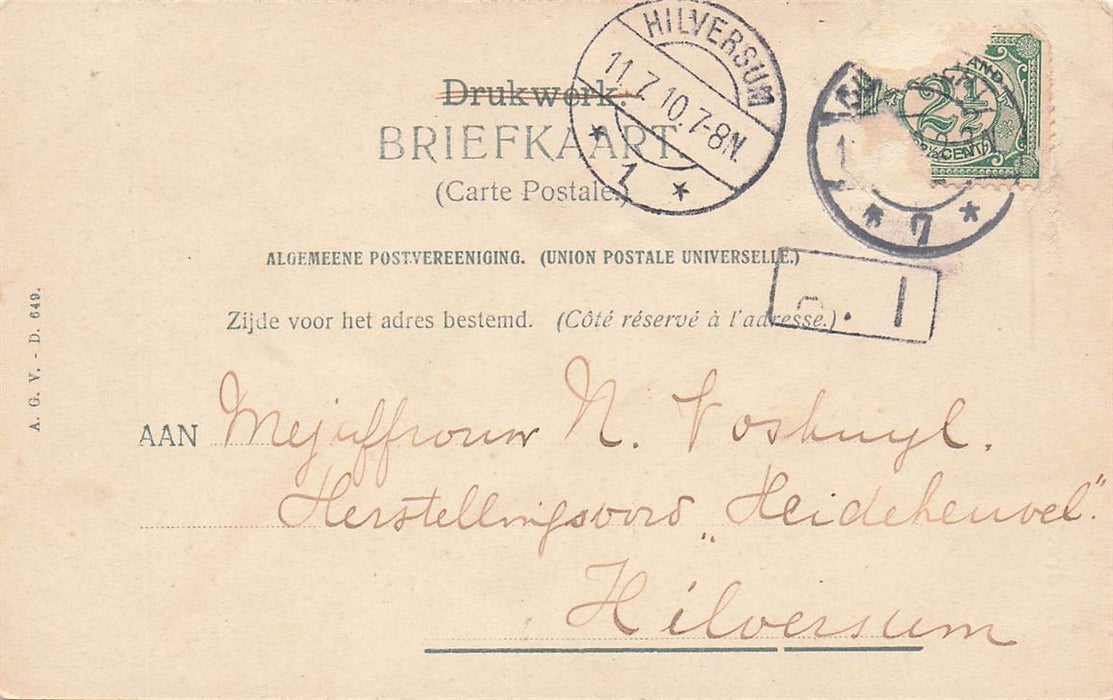 HILVERSUM
11.7.10.7-8N.
1
Drukwerk.
BRIEFKAART.
(Carte Postale.)
2½
2½ CENT
7
ALGEMEENE POSTVEREENIGING. (UNION POSTALE UNIVERSELLE.)
Zijde voor het adres bestemd. (Côté réservé à l'adresse.)
A. G. V. - D. 649.
AAN Mejuffrouw N. Voskuyl.
Herstellingsoord „Heideheuvel".
Hilversum